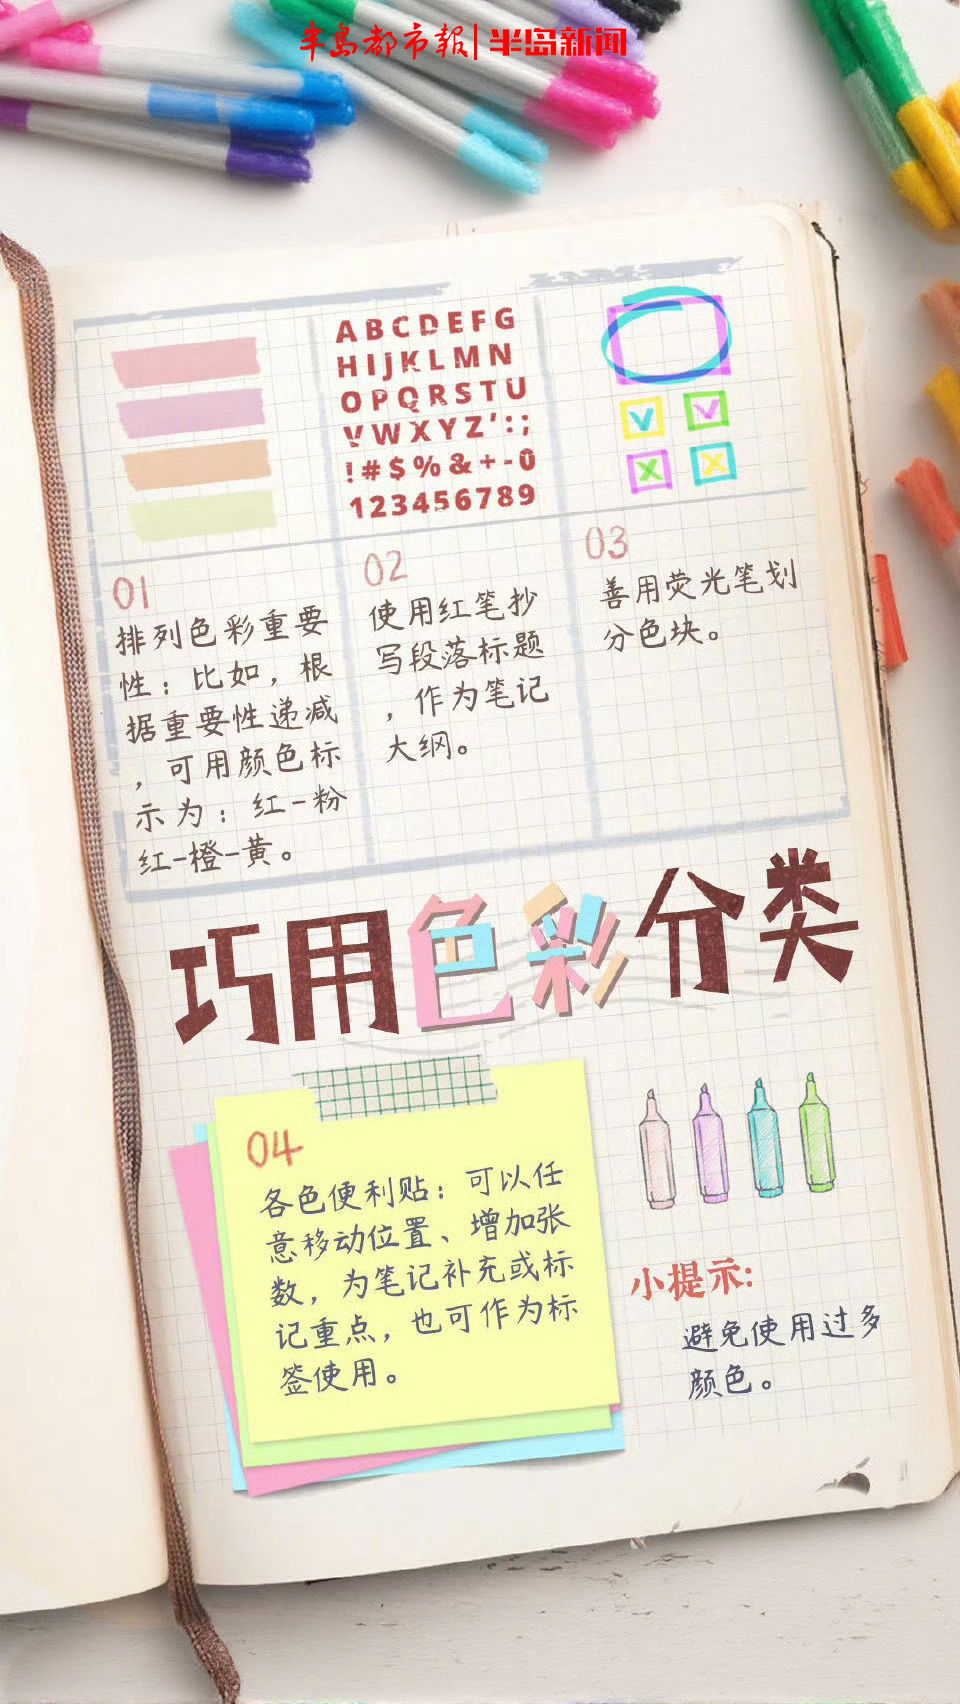 半岛都市报|半岛新闻
A B C D E F G
H I j K L M N
O P Q R S T U
V W X Y Z ' : ;
! # $ % & + - 0
1 2 3 4 5 6 7 8 9
01
排列色彩重要
性：比如，根
据重要性递减
，可用颜色标
示为：红-粉
红-橙-黄。
02
使用红笔抄
写段落标题
，作为笔记
大纲。
03
善用荧光笔划
分色块。
巧用色彩分类
04
各色便利贴：可以任
意移动位置、增加张
数，为笔记补充或标
记重点，也可作为标
签使用。
小提示:
避免使用过多
颜色。